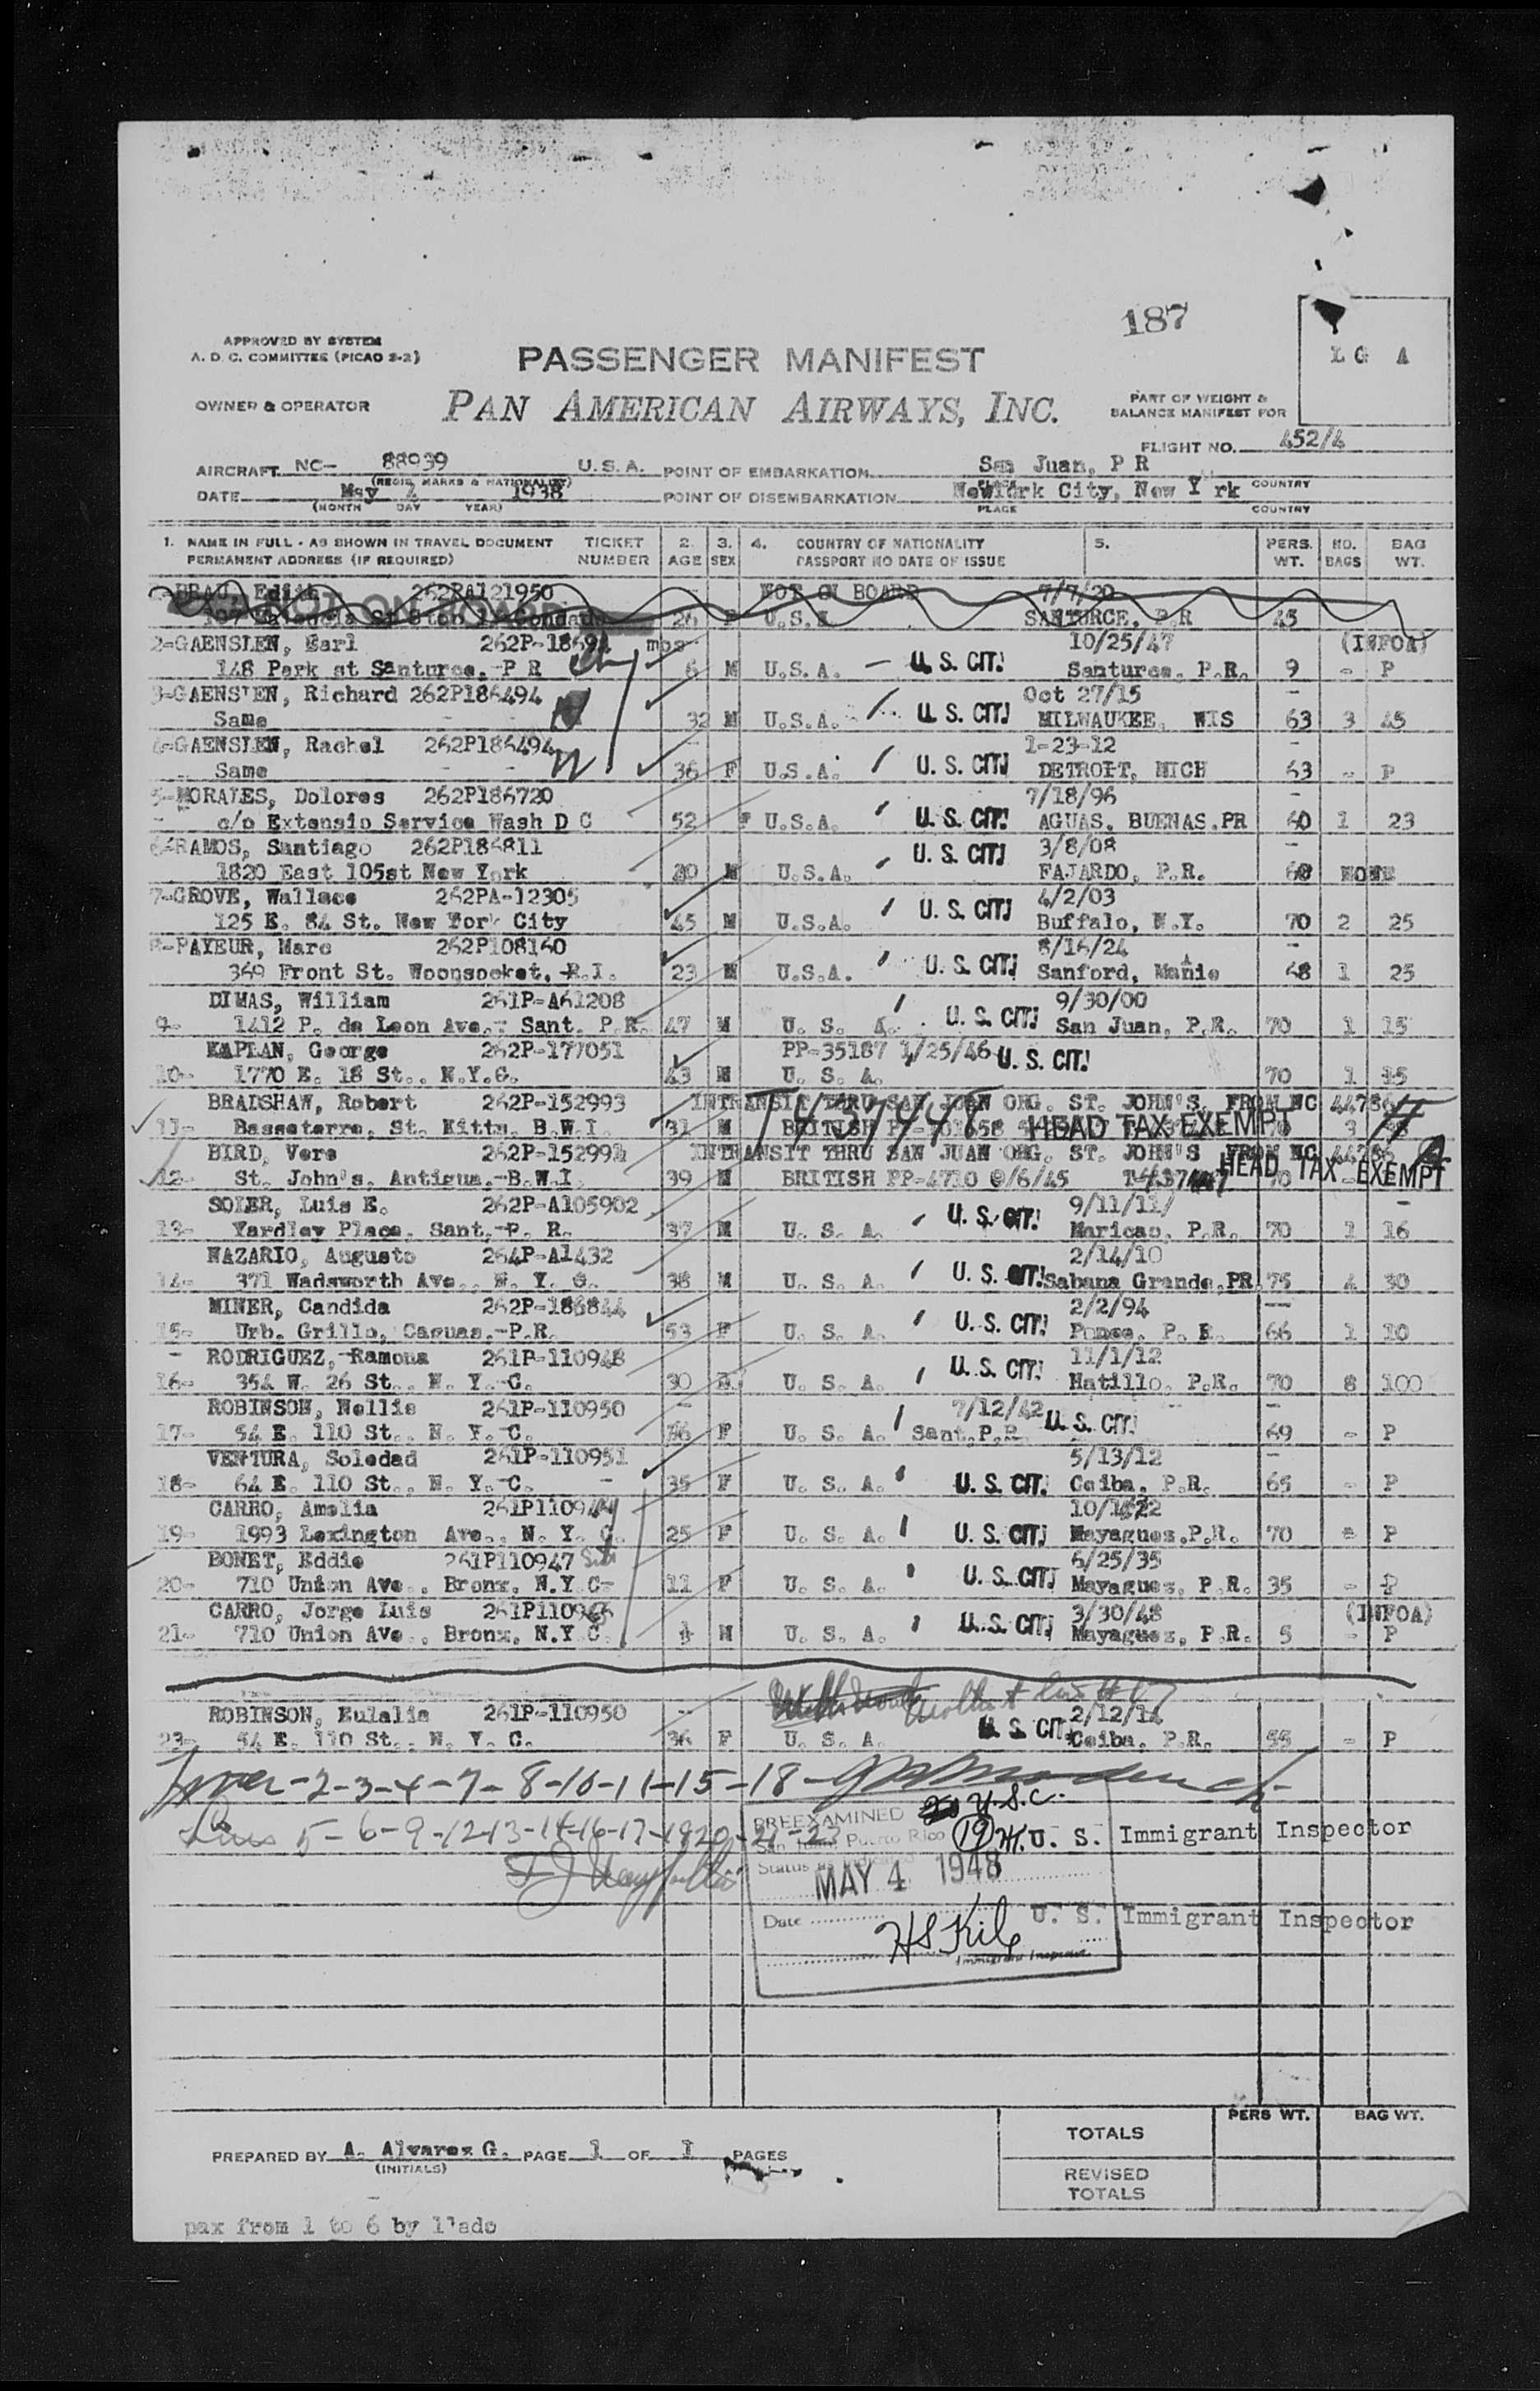 187
APPROVED BY SYSTEM
A. D. C. COMMITTEE (PICAO 2-2)
PASSENGER MANIFEST
L G A
OWNER & OPERATOR
PAN AMERICAN AIRWAYS, INC.
PART OF WEIGHT &
BALANCE MANIFEST FOR
FLIGHT NO. 452/4
AIRCRAFT NC- 88939 U. S. A. POINT OF EMBARKATION San Juan, P R
(REGIS. MARKS & NATIONALITY) PLACE COUNTRY
DATE May 4 1938 POINT OF DISEMBARKATION NewYork City, New Y rk
(MONTH DAY YEAR) PLACE COUNTRY
1. NAME IN FULL - AS SHOWN IN TRAVEL DOCUMENT TICKET 2. 3. 4. COUNTRY OF NATIONALITY 5. PERS. NO. BAG
PERMANENT ADDRESS (IF REQUIRED) NUMBER AGE SEX PASSPORT NO DATE OF ISSUE WT. BAGS WT.
BRAU, Edith 262PA121950 NOT ON BOARD 7/7/20
NOT ON BOARD 26 F U.S.A SANTURCE, P.R 45
2-GAENSLEN, Earl 262P-18694 mos 10/25/47 (INFOA)
148 Park st Santurce, P R 6 M U.S.A. U. S. CIT. Santurce, P.R. 9 - P
3-GAENSLEN, Richard 262P186494 Oct 27/15
Same 32 M U.S.A. U. S. CIT. MILWAUKEE, WIS 63 3 45
4-GAENSLEN, Rachel 262P186494 1-23-12
Same 36 F U.S.A. U. S. CIT. DETROIT, MICH 63 - P
5-MORALES, Dolores 262P186720 7/18/96
c/o Extensio Service Wash D C 52 F U.S.A. U. S. CIT. AGUAS, BUENAS.PR 60 1 23
6-RAMOS, Santiago 262P186811 U. S. CIT. 3/8/08
1820 East 105st New York 40 M U.S.A. FAJARDO, P.R. 60 NONE
7-GROVE, Wallace 262PA-12305 4/2/03
125 E. 84 St. New York City 45 M U.S.A. U. S. CIT. Buffalo, N.Y. 70 2 25
8-PAYEUR, Marc 262P108160 8/16/24
369 Front St. Woonsocket, R.I. 23 M U.S.A. U. S. CIT. Sanford, Manie 68 1 25
DIMAS, William 261P-A61208 9/30/00
9- 1412 P. de Leon Ave., Sant. P.R. 47 M U. S. A. U. S. CIT. San Juan, P.R. 70 1 15
KAPLAN, George 262P-177051 PP-35187 1/25/46 U. S. CIT.
10- 1770 E. 18 St., N.Y.C. 43 M U. S. A. 70 1 15
BRADSHAW, Robert 262P-152993 INTRANSIT THRU SAN JUAN ORG. ST. JOHN'S FROM NC 44786
11- Basseterre, St. Kitts, B.W.I. 31 M BRITISH T437448 HEAD TAX EXEMPT 3
BIRD, Vere 262P-152994 INTRANSIT THRU SAN JUAN ORG. ST. JOHN'S FROM NC 44786
12- St. John's, Antigua, B.W.I. 39 M BRITISH PP-4710 @/6/45 T-437447 70 HEAD TAX EXEMPT
SOLER, Luis E. 262P-A105902 9/11/11
13- Yardley Place, Sant. P. R. 37 M U. S. A. U. S. CIT. Maricao, P.R. 70 1 16
NAZARIO, Augusto 264P-A1432 2/14/10
14- 371 Wadsworth Ave., N. Y. C. 38 M U. S. A. U. S. CIT. Sabana Grande,PR 75 4 30
MINER, Candida 262P-186844 2/2/94
15- Urb. Grillo, Caguas, P.R. 53 F U. S. A. U. S. CIT. Ponce, P. R. 66 1 10
RODRIGUEZ, Ramona 261P-110948 11/1/12
16- 354 W. 26 St., N. Y. C. 30 U. S. A. U. S. CIT. Hatillo, P.R. 70 8 100
ROBINSON, Nellie 261P-110950 7/12/42
17- 54 E. 110 St., N. Y. C. F U. S. A. Sant,P.R. U. S. CIT. 69 - P
VENTURA, Soledad 261P-110951 5/13/12
18- 64 E. 110 St., N. Y. C. 35 F U. S. A. U. S. CIT. Ceiba, P.R. 65 - P
CARRO, Amelia 261P110944
19- 1993 Lexington Ave., N. Y. C. 25 F U. S. A. U. S. CIT. Mayaguez,P.R. 70 - P
BONET, Eddie 261P110947 6/25/35
20- 710 Union Ave., Bronx, N.Y C- 11 F U. S. A. U. S. CIT. Mayaguez, P.R. 35 - P
CARRO, Jorge Luis 261P110946 3/30/48 (INFOA)
21- 710 Union Ave., Bronx, N.Y C. M U. S. A. U. S. CIT. Mayaguez, P.R. 5 - P
ROBINSON, Eulalia 261P-110950 2/12/12
23- 54 E. 110 St., N. Y. C. 36 F U. S. A. U. S. CIT. Ceiba, P.R. 55 - P
-2-3-4-7-8-10-11-15-18-
Lines 5-6-9-12-13-14-16-17-19-20-21-23
PREEXAMINED U.S.C.
San Juan, Puerto Rico 19 U. S. Immigrant Inspector
Status as indicated
MAY 4 1948
Date U. S. Immigrant Inspector
HS Kile
Immigrant Inspector
TOTALS PERS WT. BAG WT.
PREPARED BY A. Alvarez G. PAGE 1 OF 1 PAGES
(INITIALS)
REVISED
TOTALS
pax from 1 to 6 by llado